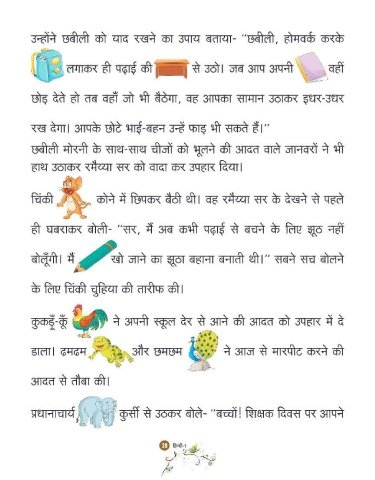 उन्होंने छबीली को याद रखने का उपाय बताया- “छबीली, होमवर्क करके
लगाकर ही पढ़ाई की से उठो। जब आप अपनी वहीं
छोड़ देते हो तब वहाँ जो भी बैठेगा, वह आपका सामान उठाकर इधर-उधर
रख देगा। आपके छोटे भाई-बहन उन्हें फाड़ भी सकते हैं।”
छबीली मोरनी के साथ-साथ चीजों को भूलने की आदत वाले जानवरों ने भी
हाथ उठाकर रमैय्या सर को वादा कर उपहार दिया।
चिंकी कोने में छिपकर बैठी थी। वह रमैय्या सर के देखने से पहले
ही घबराकर बोली- “सर, मैं अब कभी पढ़ाई से बचने के लिए झूठ नहीं
बोलूँगी। मैं खो जाने का झूठा बहाना बनाती थी।” सबने सच बोलने
के लिए चिंकी चुहिया की तारीफ की।
कुकड़ूँ-कूँ ने अपनी स्कूल देर से आने की आदत को उपहार में दे
डाला। ढमढम और छमछम ने आज से मारपीट करने की
आदत से तौबा की।
प्रधानाचार्य, कुर्सी से उठकर बोले- “बच्चों! शिक्षक दिवस पर आपने
हिन्दी-1